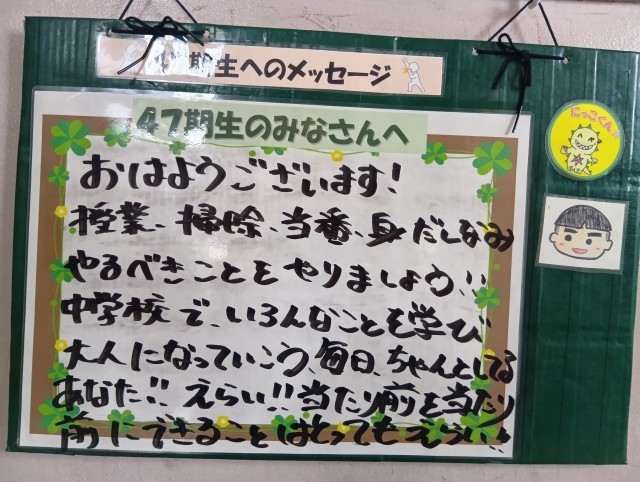 期生へのメッセージ
47期生のみなさんへ
おはようございます!
授業、掃除、当番、身だしなみ
やるべきことをやりましょう!!
中学校で、いろんなことを学び
大人になっていこう、毎日、ちゃんとしてる
あなた!!えらい!!当たり前を当たり
前にできることはとってもえらい!!
にっこくん